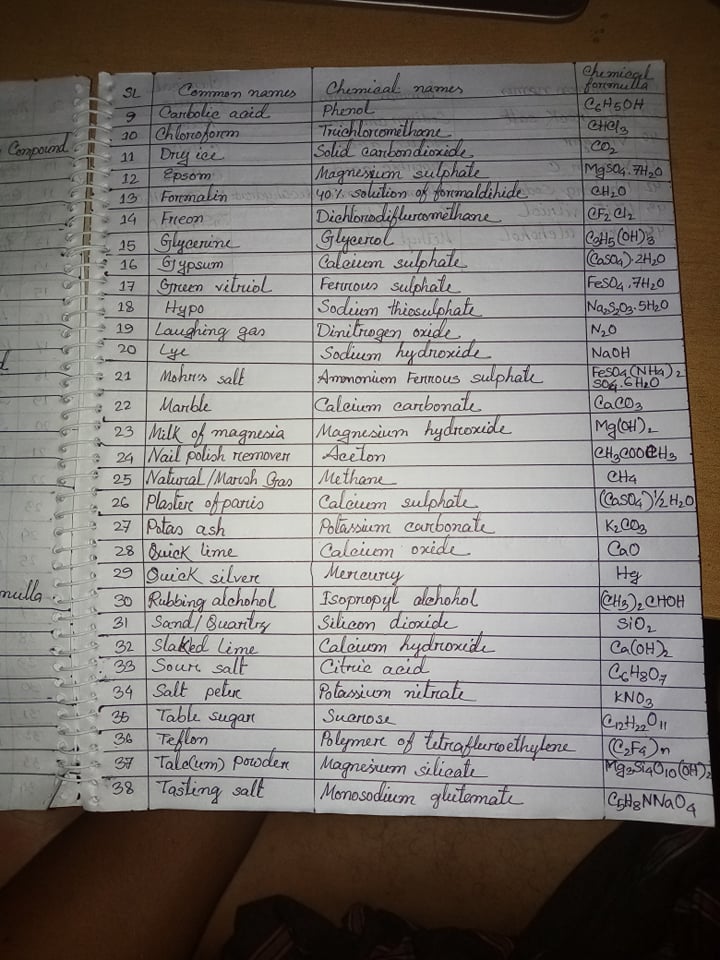 Compound
mulla
SL Common names Chemical names Chemical formulla
9 Carbolic acid Phenol C6H5OH
10 Chloroform Trichloromethane CHCl3
11 Dry ice Solid carbondioxide CO2
12 Epsom Magnesium sulphate MgSO4.7H2O
13 Formalin 40% solution of formaldihide CH2O
14 Freon Dichlorodifluromethane CF2Cl2
15 Glycerine Glycerol C3H5(OH)3
16 Gypsum Calcium sulphate (CaSO4).2H2O
17 Green vitriol Ferrous sulphate FeSO4.7H2O
18 Hypo Sodium thiosulphate Na2S2O3.5H2O
19 Laughing gas Dinitrogen oxide N2O
20 Lye Sodium hydroxide NaOH
21 Mohr's salt Ammonium Ferrous sulphate FeSO4(NH4)2 SO4.6H2O
22 Marble Calcium carbonate CaCO3
23 Milk of magnesia Magnesium hydroxide Mg(OH)2
24 Nail polish remover Aceton CH3COCH3
25 Natural/Marsh Gas Methane CH4
26 Plaster of paris Calcium sulphate (CaSO4)1/2H2O
27 Potas ash Potassium carbonate K2CO3
28 Quick lime Calcium oxide CaO
29 Quick silver Mercury Hg
30 Rubbing alchohol Isopropyl alchohol (CH3)2CHOH
31 Sand/Quartz Silicon dioxide SiO2
32 Slaked lime Calcium hydroxide Ca(OH)2
33 Sour salt Citric acid C6H8O7
34 Salt peter Potassium nitrate KNO3
35 Table sugar Sucrose C12H22O11
36 Teflon Polymer of tetrafluroethylene (C2F4)n
37 Talc(um) Powder Magnesium silicate Mg3Si4O10(OH)2
38 Tasting salt Monosodium glutamate C5H8NNaO4